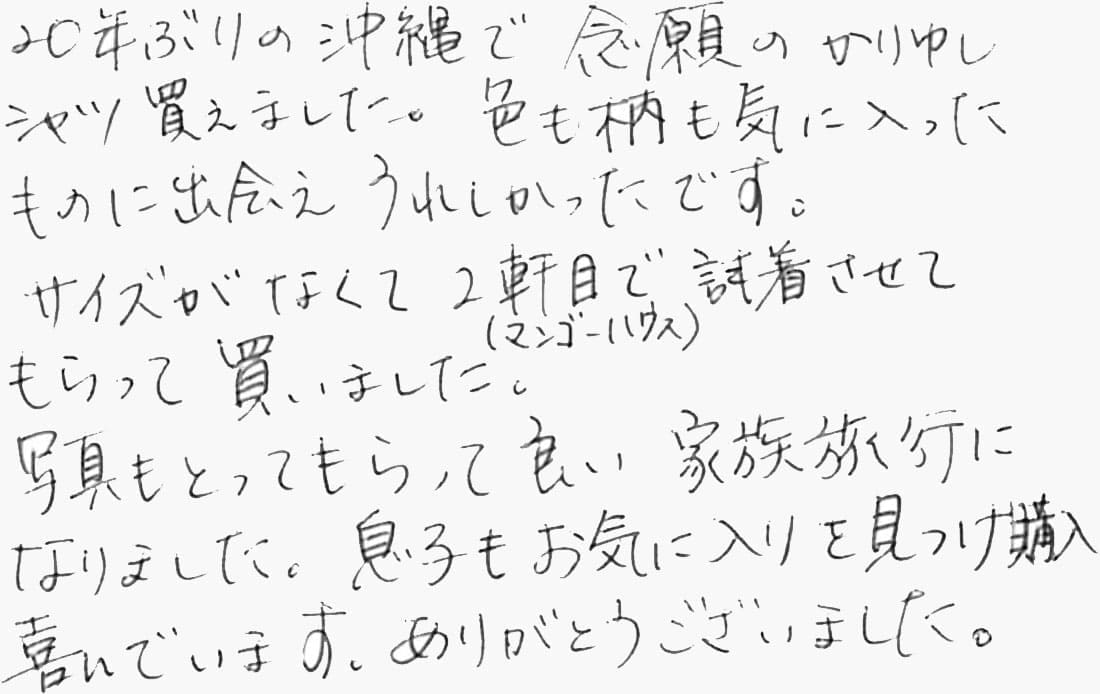 20年ぶりの沖縄で念願のかりゆし
シャツ買えました。色も柄も気に入った
ものに出会えうれしかったです。
サイズがなくて2軒目で試着させて
(マンゴーハウス)
もらって買いました。
写真もとってもらって良い家族旅行に
なりました。息子もお気に入りを見つけ購入
喜んでいます、ありがとうございました。